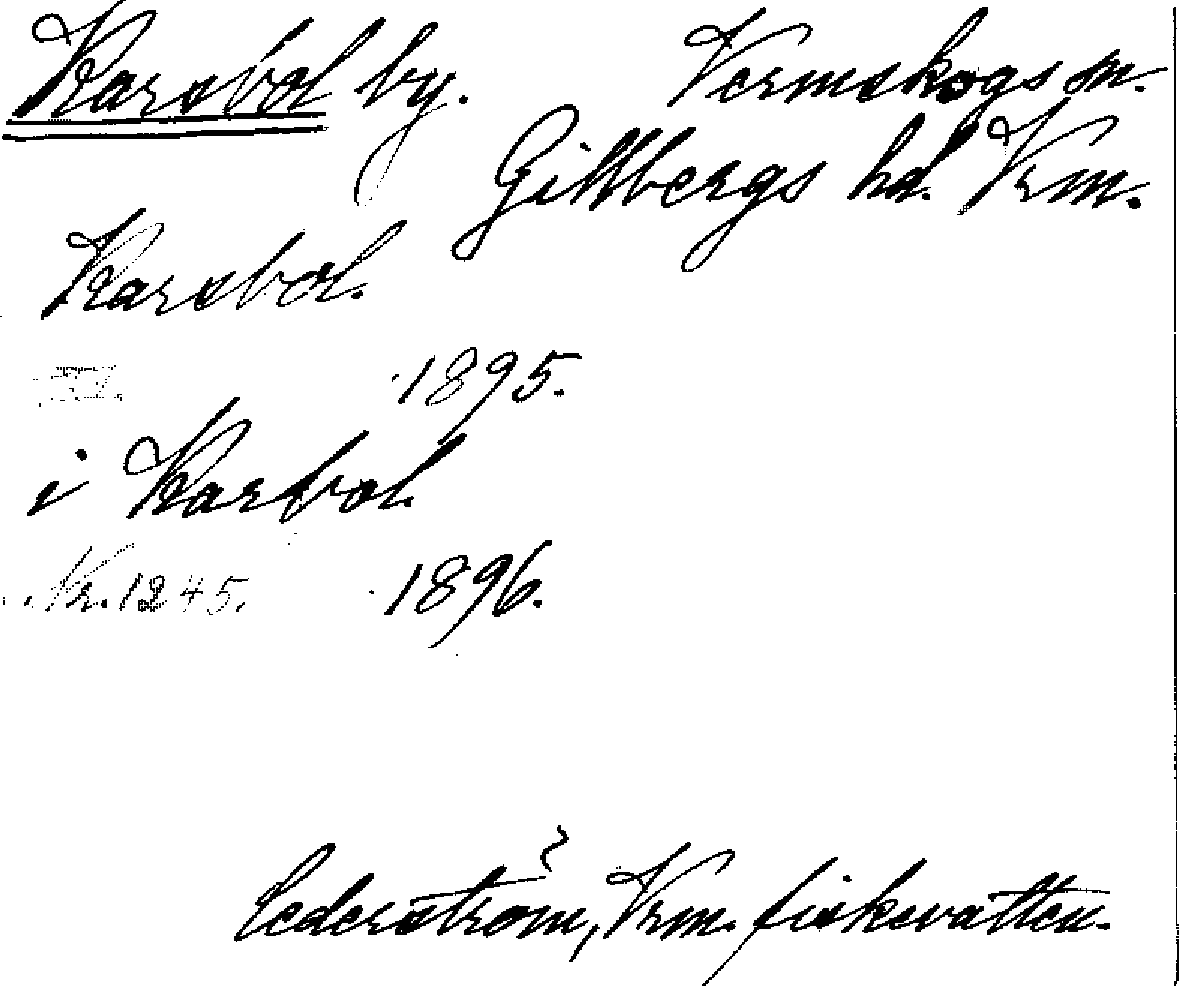 Karsbol by. Vermskogs sn.
Gillbergs hd. Vrm.
Karsbol.
1895.
i Karsbol.
Nr. 1245. 1896.
Cederström, Vrm. fiskevatten.